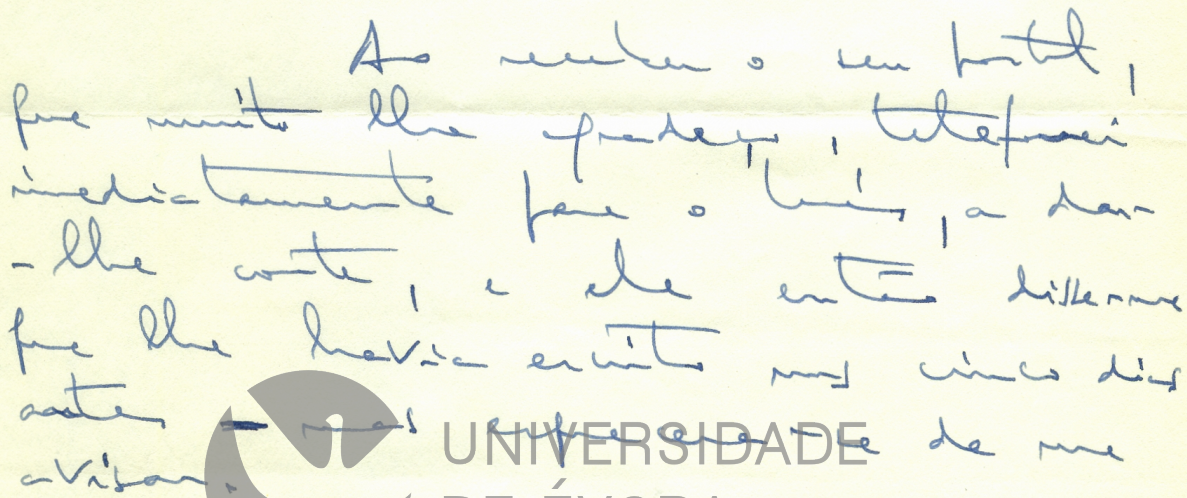 Ao receber o seu postal,
que muito lhe agradeço, telefonei
imediatamente para o Luís, a dar-
-lhe conta, e ele então disse-me
que lhe havia escrito uns cinco dias
antes – mas esquecera-se de me
avisar.
UNIVERSIDADE
DE ÉVORA